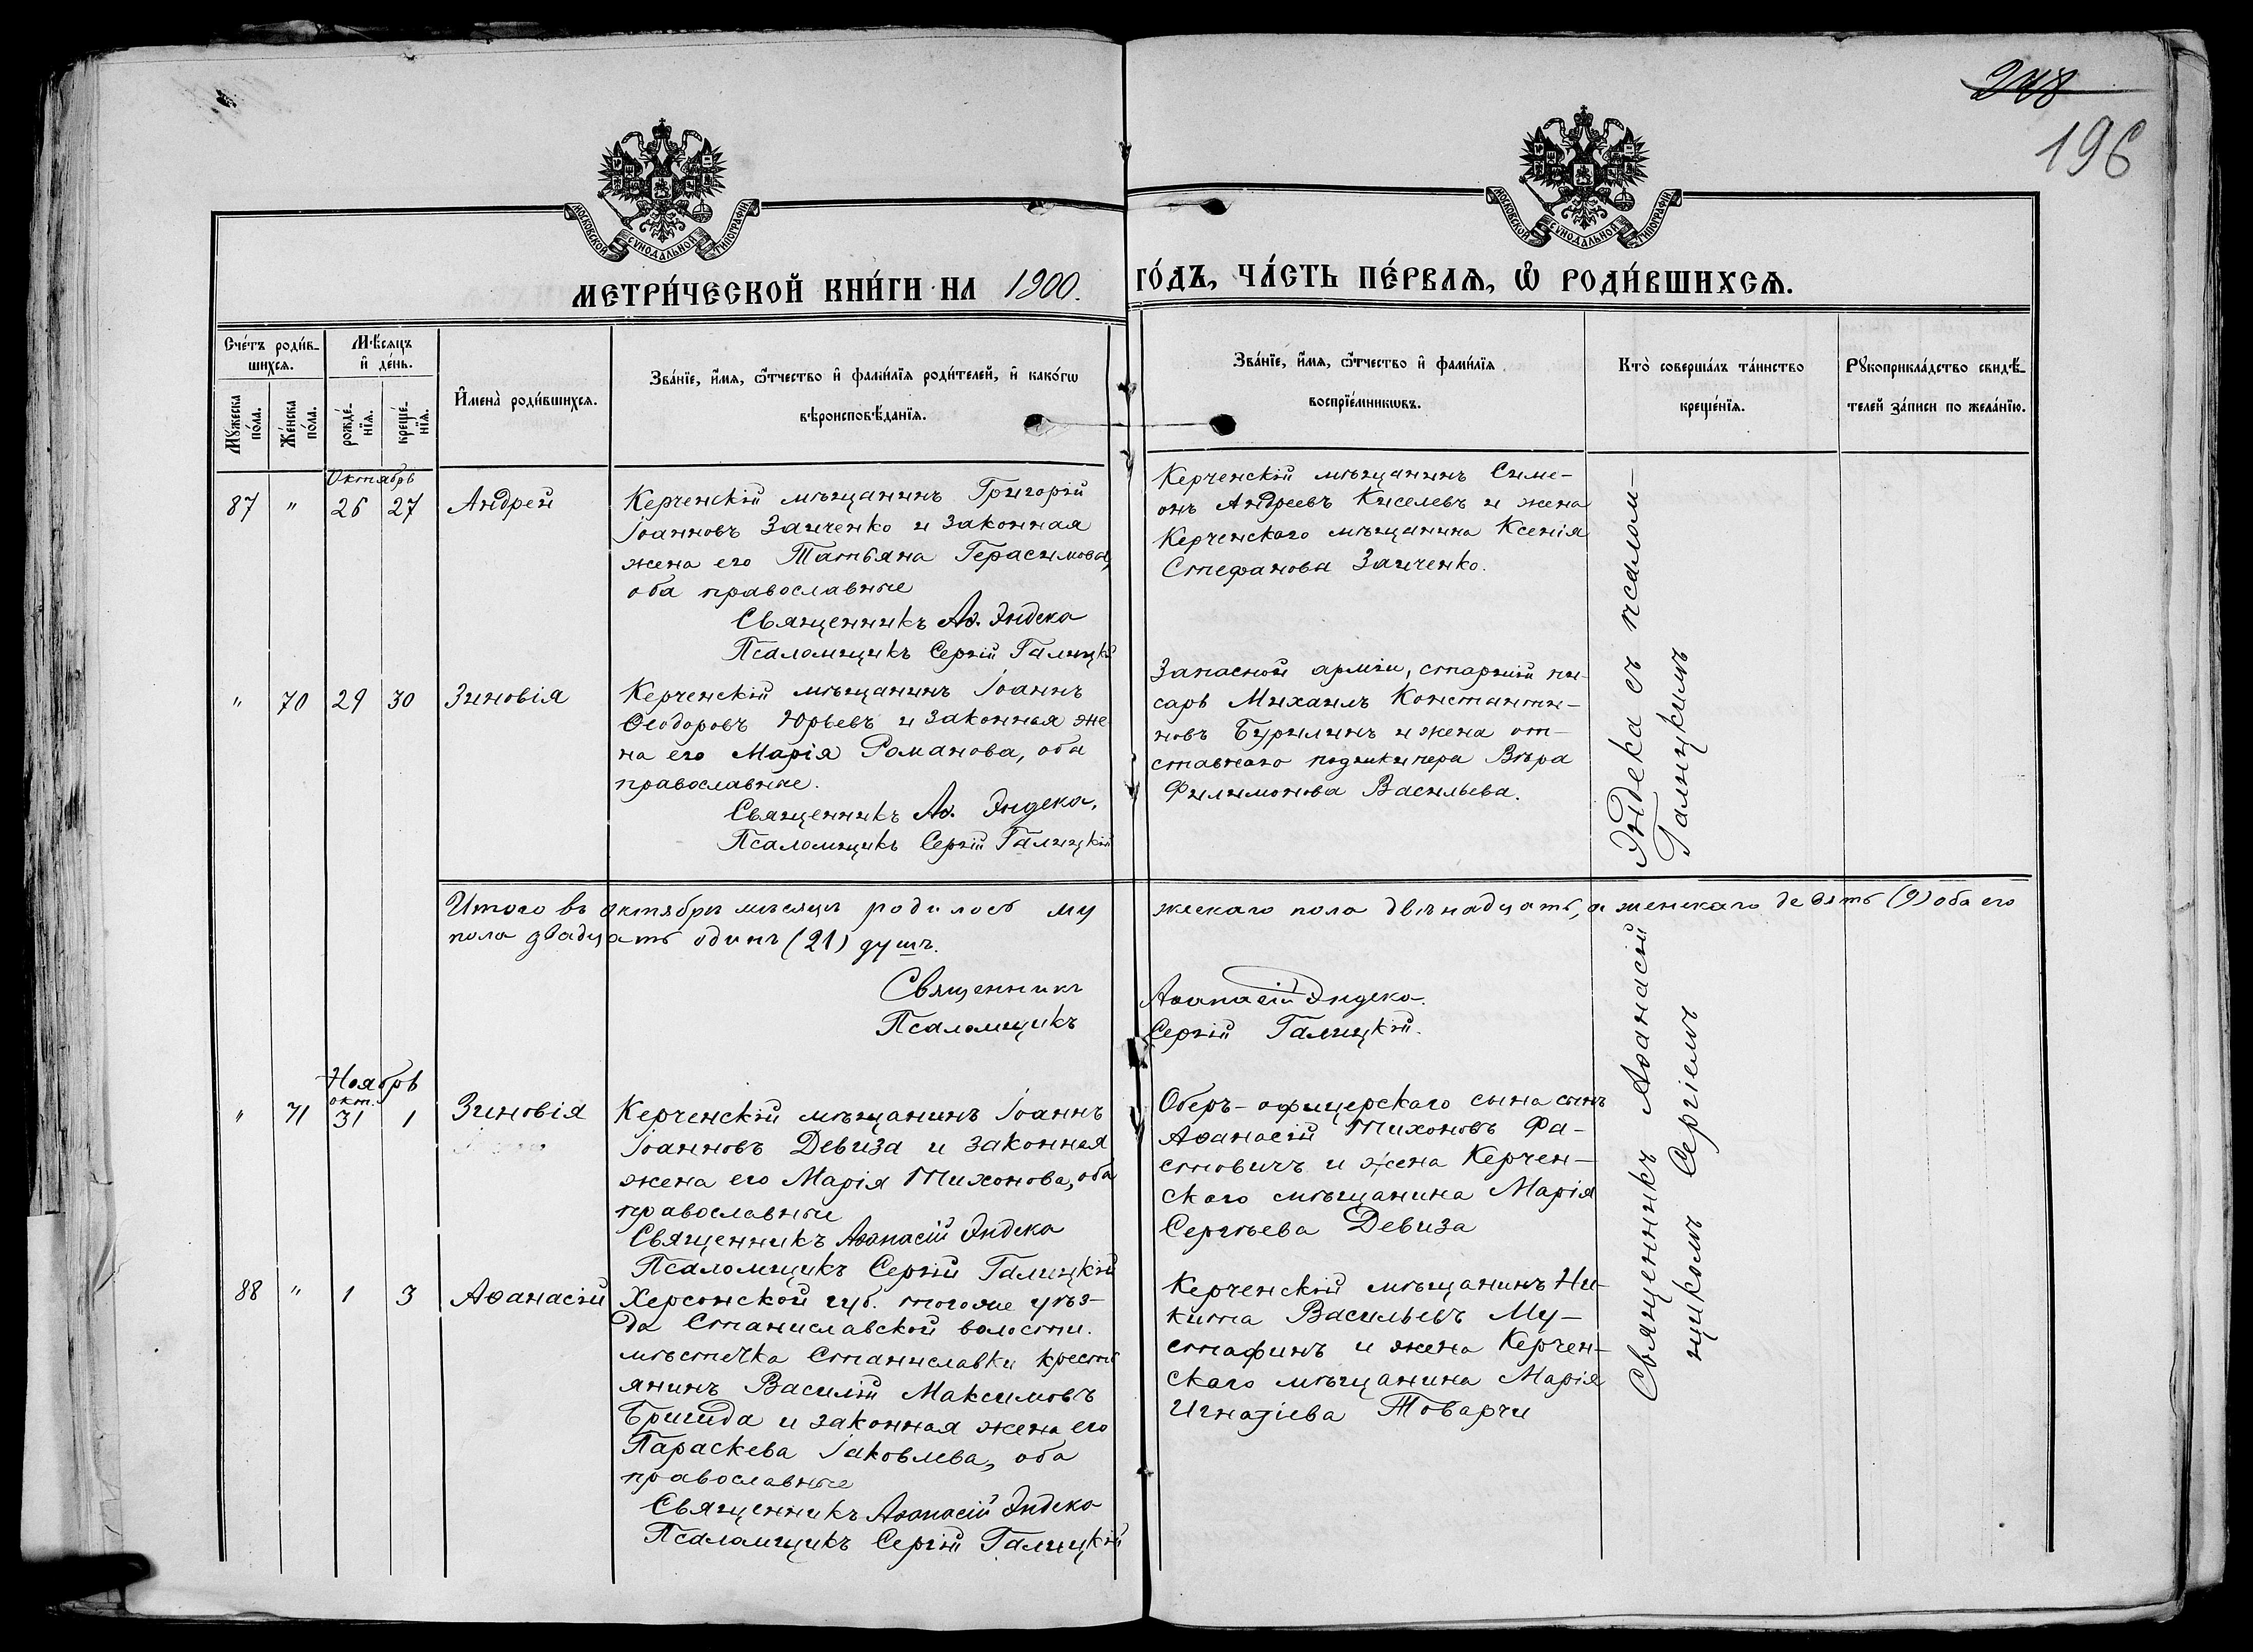 248
196
МОСКОВСКОЙ СѴНОДАЛЬНОЙ ТИПОГРАФІИ
МОСКОВСКОЙ СѴНОДАЛЬНОЙ ТИПОГРАФІИ
МЕТРИ́ЧЕСКОЙ КНИ́ГИ НА 1900. ГО́ДЪ, ЧА́СТЬ ПЕ́РВАѦ, Ѡ҆ РОДИ́ВШИХСѦ.
Сче́тъ роди́в-
шихсѧ.
Мꙋ́жеска по́ла.
Же́нска по́ла.
Мѣ́сѧцъ
и҆ де́нь.
рожде́-
нїѧ.
креще́-
нїѧ.
И҆мена̀ роди́вшихсѧ.
Зва́нїе, и҆́мѧ, ѻ҆́тчество и҆ фами́лїѧ роди́телей, и҆ како́гѡ
вѣроисповѣ́данїѧ.
Зва́нїе, и҆́мѧ, ѻ҆́тчество и҆ фами́лїѧ
воспрїе́мникѡвъ.
Кто̀ соверша́лъ та́инство
креще́нїѧ.
Рꙋкоприкла́дство свидѣ́-
телей за́писи по жела́нїю.
Октябрь
87 " 26 27 Андрей
Керченскій мѣщанинъ Григорій
Іоанновъ Заиченко и законная
жена его Татьяна Герасимова,
оба православные
Священникъ Аѳ. Эндека
Псаломщикъ Сергій Галицкій
Керченскій мѣщанинъ Симе-
онъ Андреевъ Киселевъ и жена
Керченскаго мѣщанина Ксенія
Стефанова Заиченко.
" 70 29 30 Зиновія
Керченскій мѣщанинъ Іоаннъ
Ѳеодоровъ Юрьевъ и законная же
на его Марія Романова, оба
православные.
Священникъ Аѳ. Эндека.
Псаломщикъ Сергій Галицкій
Запасной арміи, старшій пи-
сарь Михаилъ Константи-
новъ Бурилинъ и жена от-
ставнаго подшкипера Вѣра
Филимонова Васильева.
Итого въ октябрѣ мѣсяцѣ родилось му жескаго пола двѣнадцать, а женскаго девять (9) оба его
пола двадцать одинъ (21) душъ.
Священникъ Аѳанасій Эндека.
Псаломщикъ Сергій Галицкій.
Ноябрь
окт.
" 71 31 1 Зиновія
Керченскій мѣщанинъ Іоаннъ
Іоанновъ Девиза и законная
жена его Марія Тихонова, оба
православные
Священникъ Аѳанасій Эндека
Псаломщикъ Сергій Галицкій
Оберъ-офицерскаго сына сынъ
Аѳанасій Тихоновъ Фа-
стовичъ и жена Керчен-
скаго мѣщанина Марія
Сергѣева Девиза
88 " 1 3 Аѳанасій
Херсонской губ. того же уѣз-
да Станиславской волости.
мѣстечка Станиславки кресть
янинъ Василій Максимовъ
Бригида и законная жена его
Параскева Іаковлева, оба
православные
Священникъ Аѳанасій Эндека
Псаломщикъ Сергій Галицкій
Керченскій мѣщанинъ Ни-
кита Васильевъ Му-
стафинъ и жена Керчен-
скаго мѣщанина Марія
Игнатіева Товарчи
Священникъ Аѳанасій Эндека съ псалом-
щикомъ Сергіемъ Галицкимъ